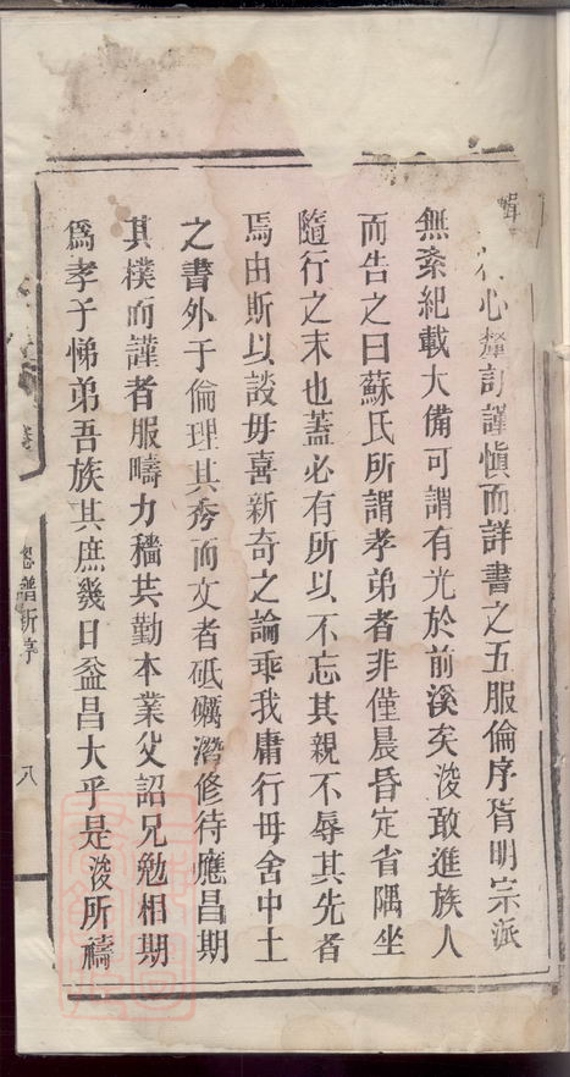 輯 心釐訂謹慎而詳書之五服倫序胥明宗派
無紊紀載大備可謂有光於前溪矣浚敢進族人
而告之曰蘇氏所謂孝弟者非僅晨昏定省隅坐
隨行之末也蓋必有所以不忘其親不辱其先者
焉由斯以談毋喜新奇之論乖我庸行毋舍中土
之書外于倫理其秀而文者砥礪潛修待應昌期
其樸而謹者服疇力穡共勤本業父詔兄勉相期
爲孝子悌弟吾族其庶幾日益昌大乎是浚所禱
譜新序
八